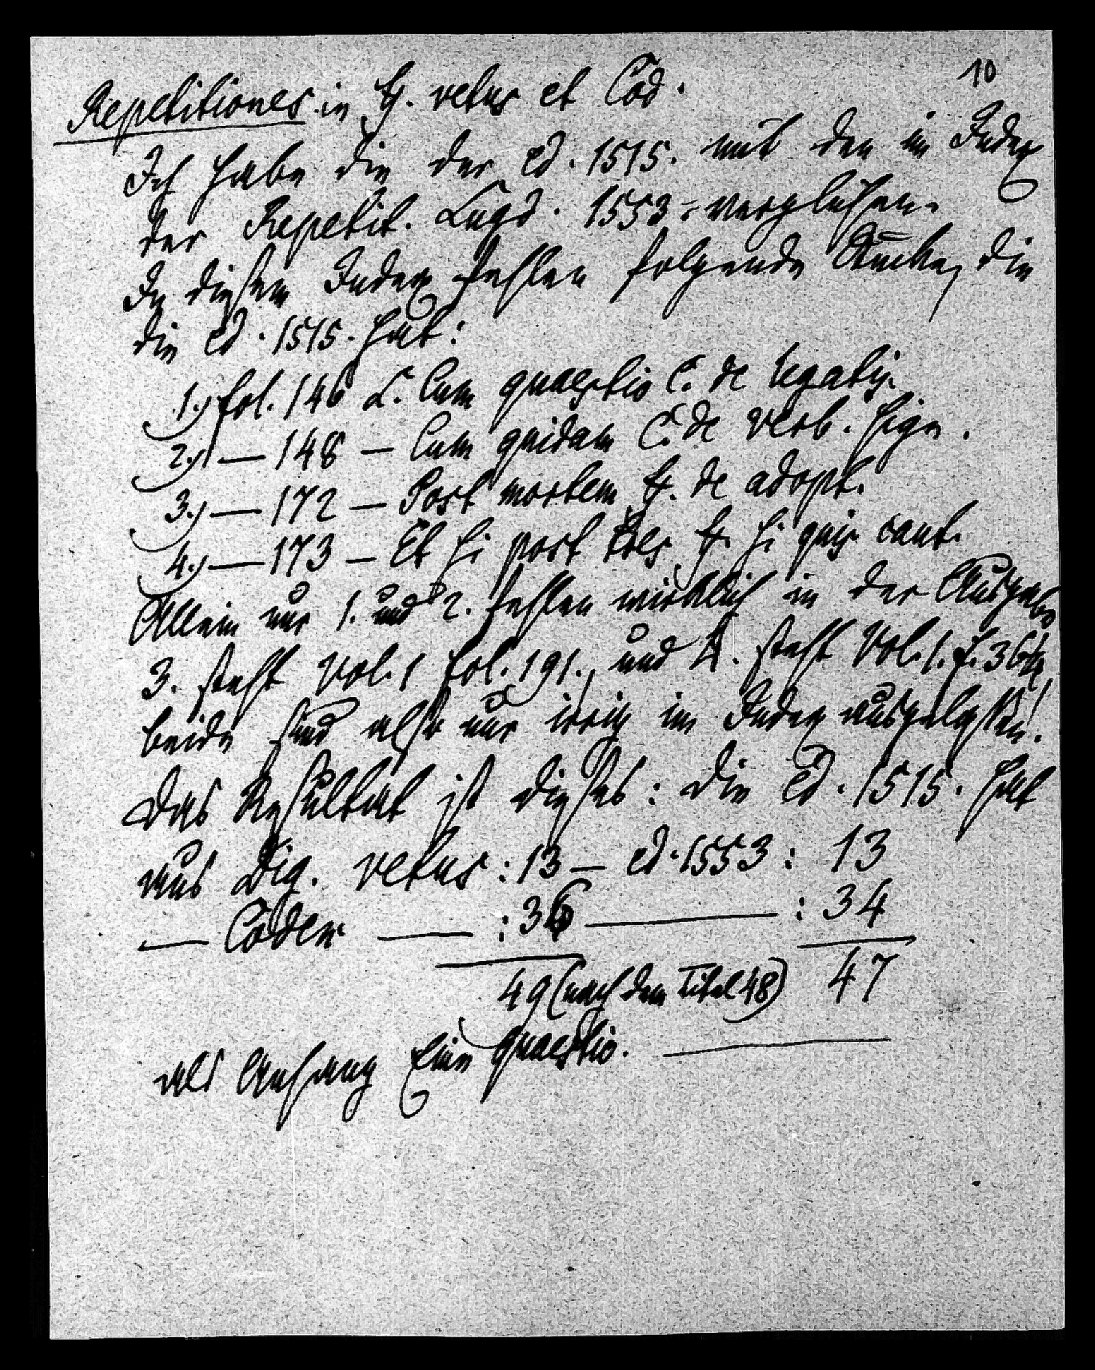 10
Repetitiones in ff. vetus et Cod.
Ich habe die der ed. 1515. mit den im Index
der Repetit. Lugd. 1553. verglichen.
In diesem Index fehlen folgende Stücke, die
die ed. 1515. hat:
1.) fol. 146 L. Cum quaestio C. de legatis.
2.) — 148 — Cum quidam C. de verb. sign.
3.) — 172 — Post mortem ff. de adopt.
4.) — 173 — Et si post tres ff. si quis caut.
Allein nur 1. und 2. fehlen wirklich in der Ausgabe
3. steht Vol. 1 fol. 191., und 4. steht Vol. 1. f. 364
beide sind also nur irrig im Index ausgelassen!
Das Resultat ist dieses: die ed. 1515. hat
aus Dig. vetus : 13 — ed. 1553 : 13
— Codex — : 36 — : 34
49 (nach dem Titel 48) 47
als Anhang Eine quaestio. —